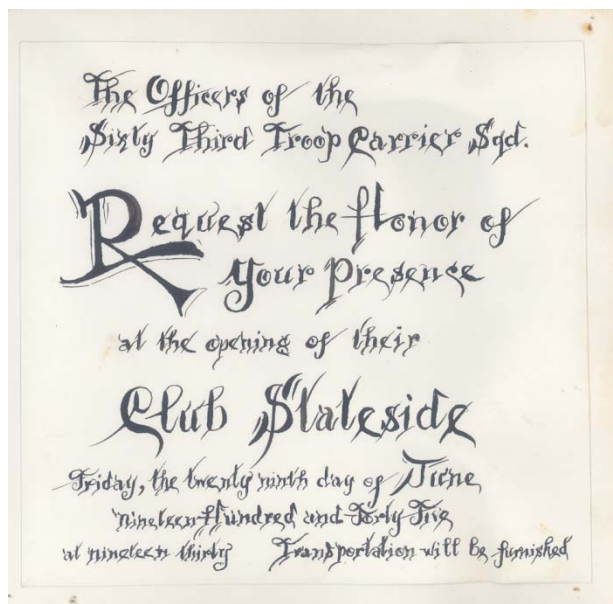 The Officers of the
Sixty Third Troop Carrier Sqd.
Request the Honor of
Your Presence
at the opening of their
Club Stateside
Friday, the twenty ninth day of June
nineteen Hundred and Forty Five
at nineteen thirty Transportation will be furnished